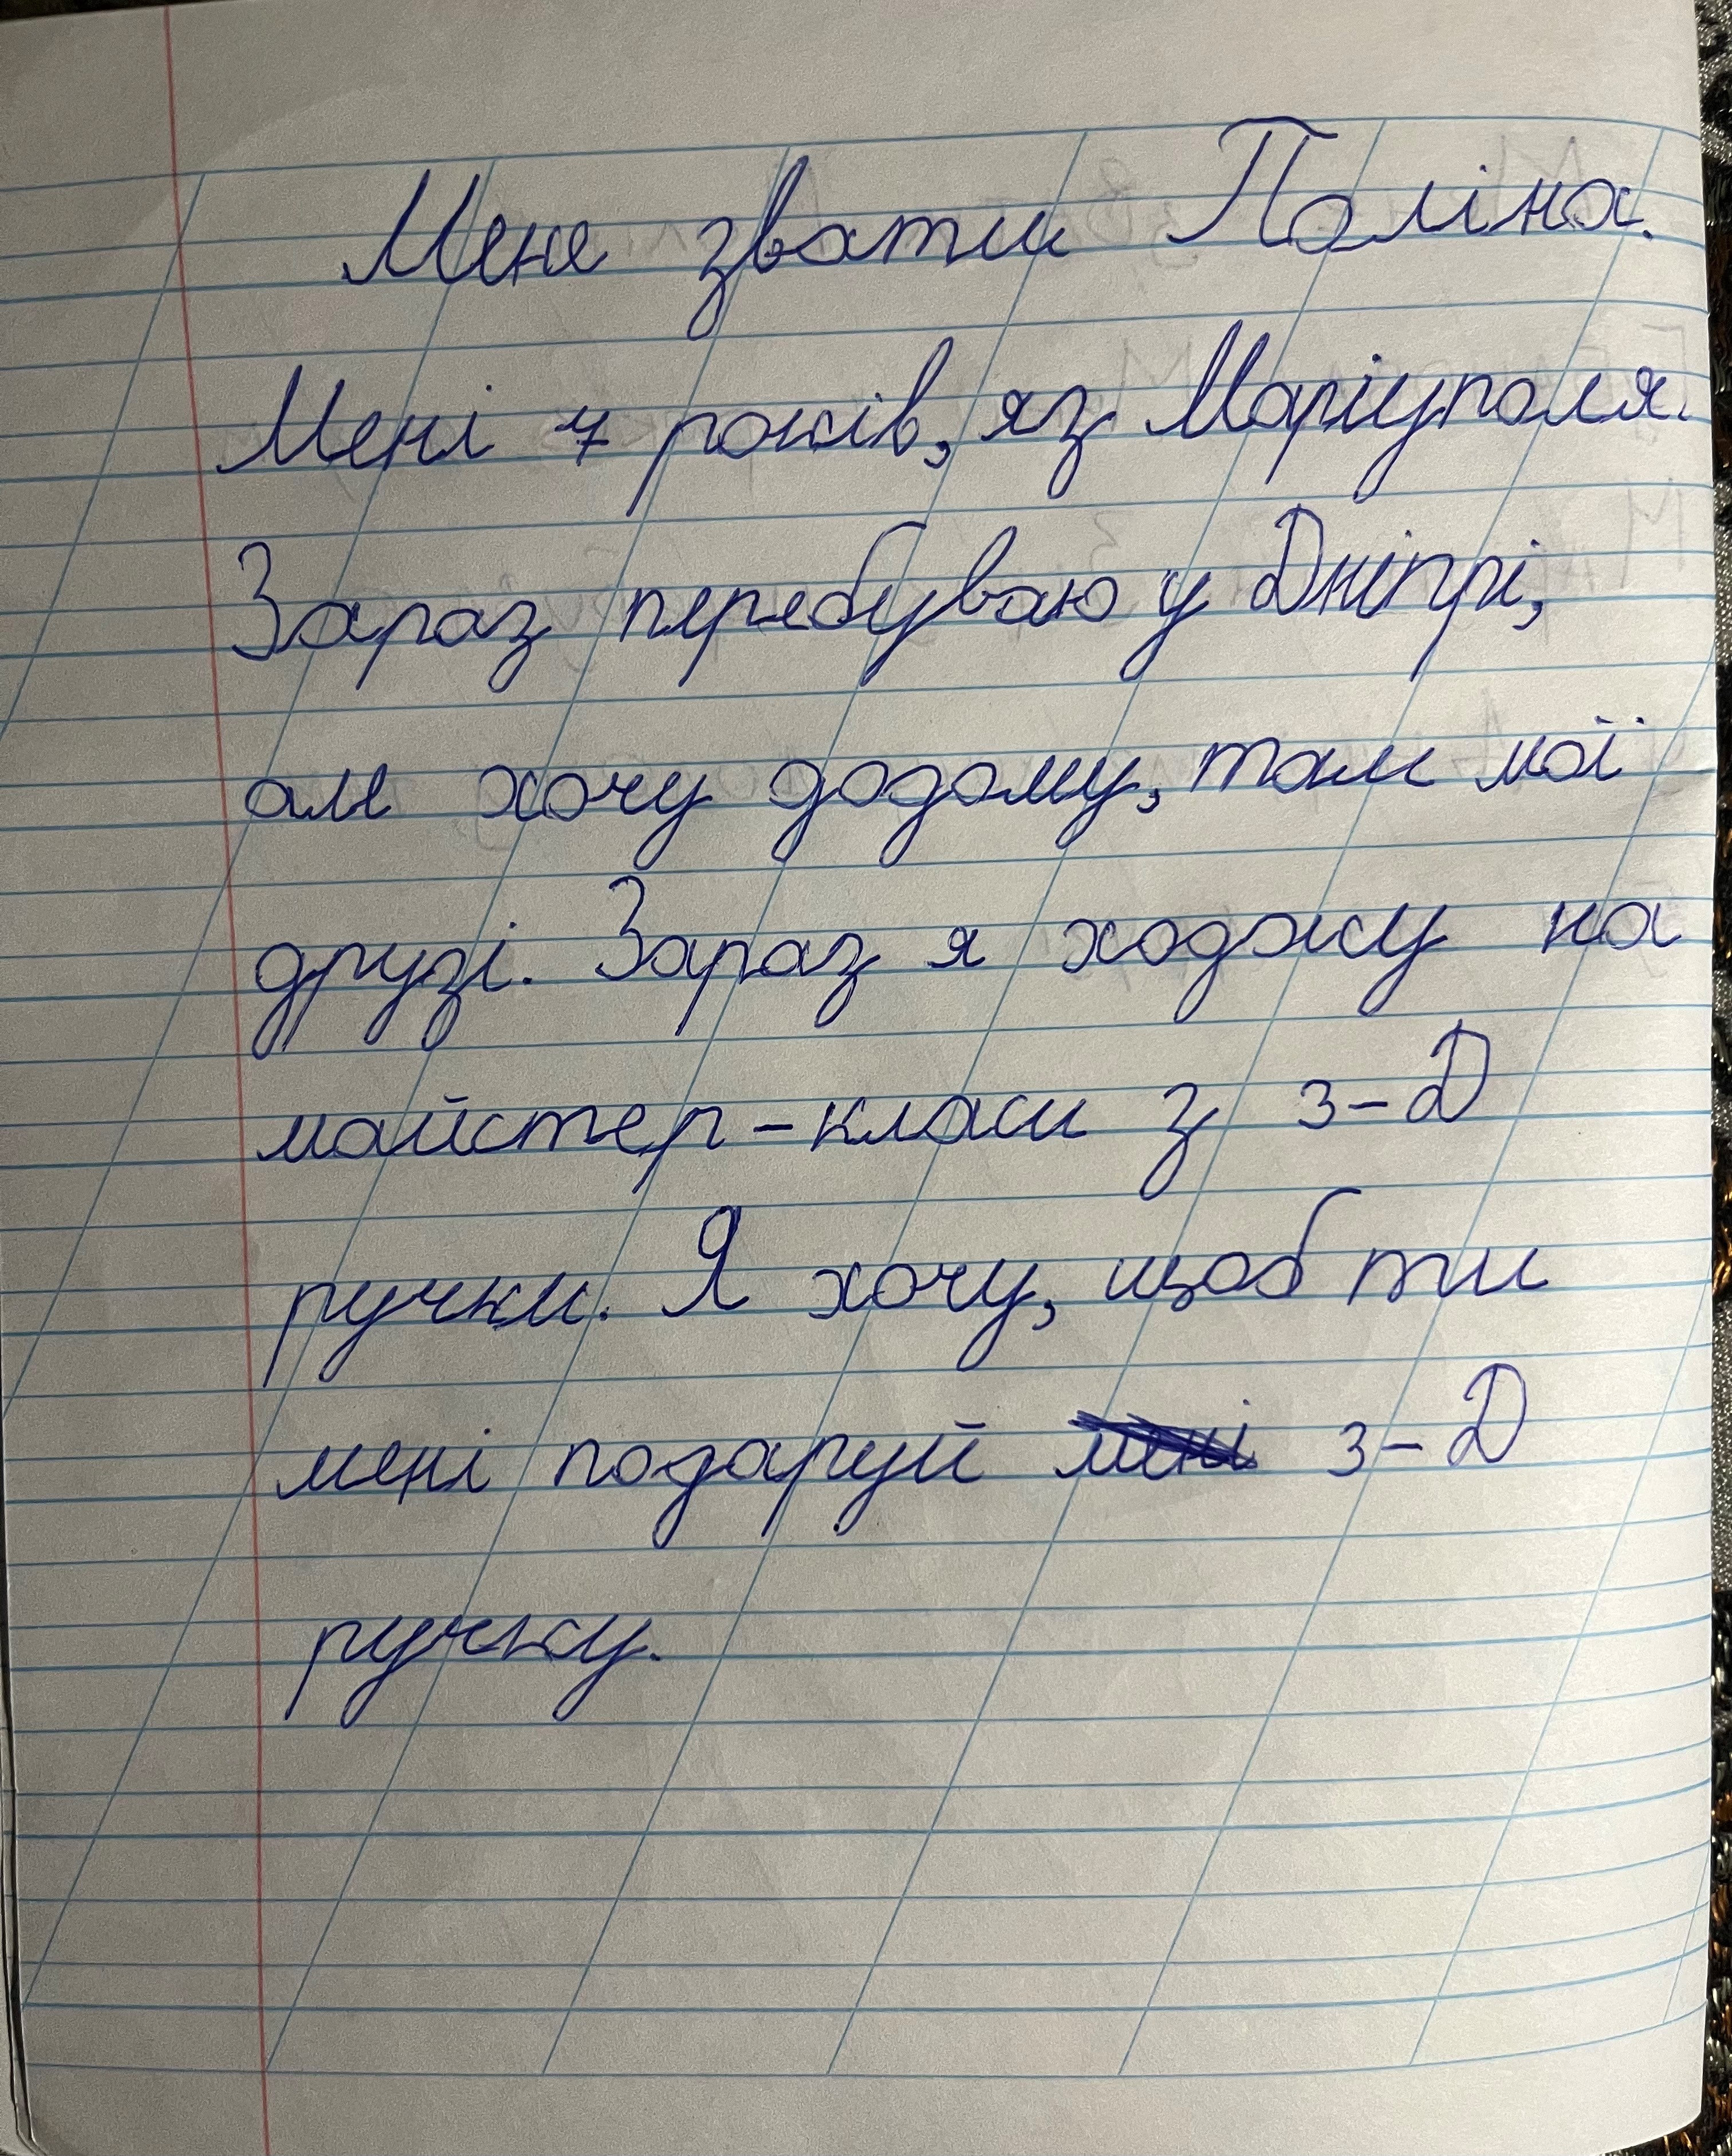 Мене звати Поліна.
Мені 7 років, я з Маріуполя.
Зараз перебуваю у Дніпрі,
але хочу додому, там мої
друзі. Зараз я ходжу на
майстер-класи з 3-D
ручки. Я хочу, щоб ти
мені подаруй мені 3-D
ручку.